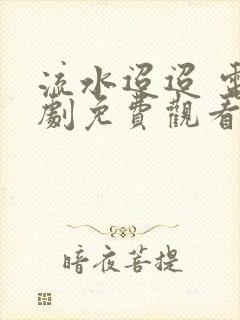 流水迢迢 電
劇免費觀看
暗夜菩提